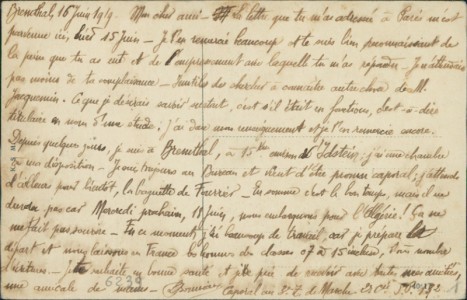 Bremthal, 16 Juin 1919. Mon cher ami - La lettre que tu m'as adressée à Paris m'est
parvenue ici, hier 15 Juin - Je t'en remercie beaucoup et te suis bien reconnaissant de
la peine que tu as eue et de l'empressement avec laquelle tu m'as répondu. Je n'attendais
pas moins de ta complaisance - Inutile de chercher à connaître autre chose de M.
Jacquemin. Ce que je devais savoir surtout, c'est s'il était en fonctions, c'est-à-dire
titulaire en nom d'une étude ; j'ai donc mon renseignement et je t'en remercie encore.
Depuis quelques jours, je suis à Bremthal, à 15 km environ d'Idstein ; j'ai une chambre
à ma disposition - Je suis toujours au Bureau et vient d'être promu caporal ; j'attends
d'ailleurs pour bientôt, la baguette de Fourrier - En somme c'est le bon temps, mais il ne
durera pas car Mercredi prochain, 18 Juin, nous embarquons pour l'Algérie ! Ça ne
me fait pas sourire - En ce moment, j'ai beaucoup de travail, car je prépare le
départ et nous laissons en France 60 hommes des classes 09 à 15 inclus, d'où nombre
d'écritures - Je te souhaite en bonne santé et je te prie de recevoir avec toutes mes amitiés,
une amicale poignée de mains -
Caporal au 3e Z de Marche
6229
1